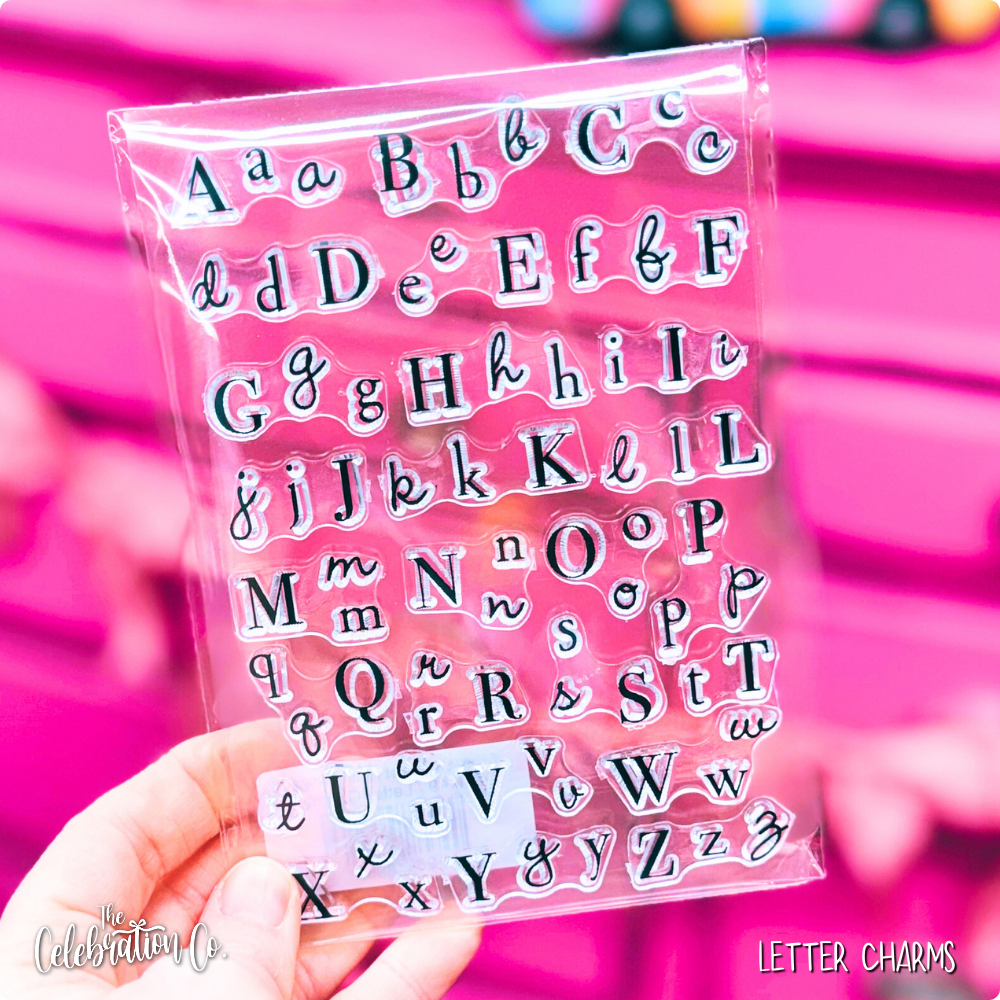 A a a B b b C c c
d d D e e E f f F
G g g H h h i I i
j j J k k K l l L
M m m N n n O o o P p p
q q Q r r R s s S t T
t U u u V v v W w w
X x x Y y y Z z z
The
Celebration Co.
LETTER CHARMS